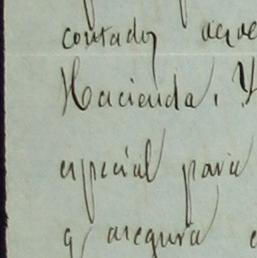 contador
Hacienda. Y
especial para
q asegura